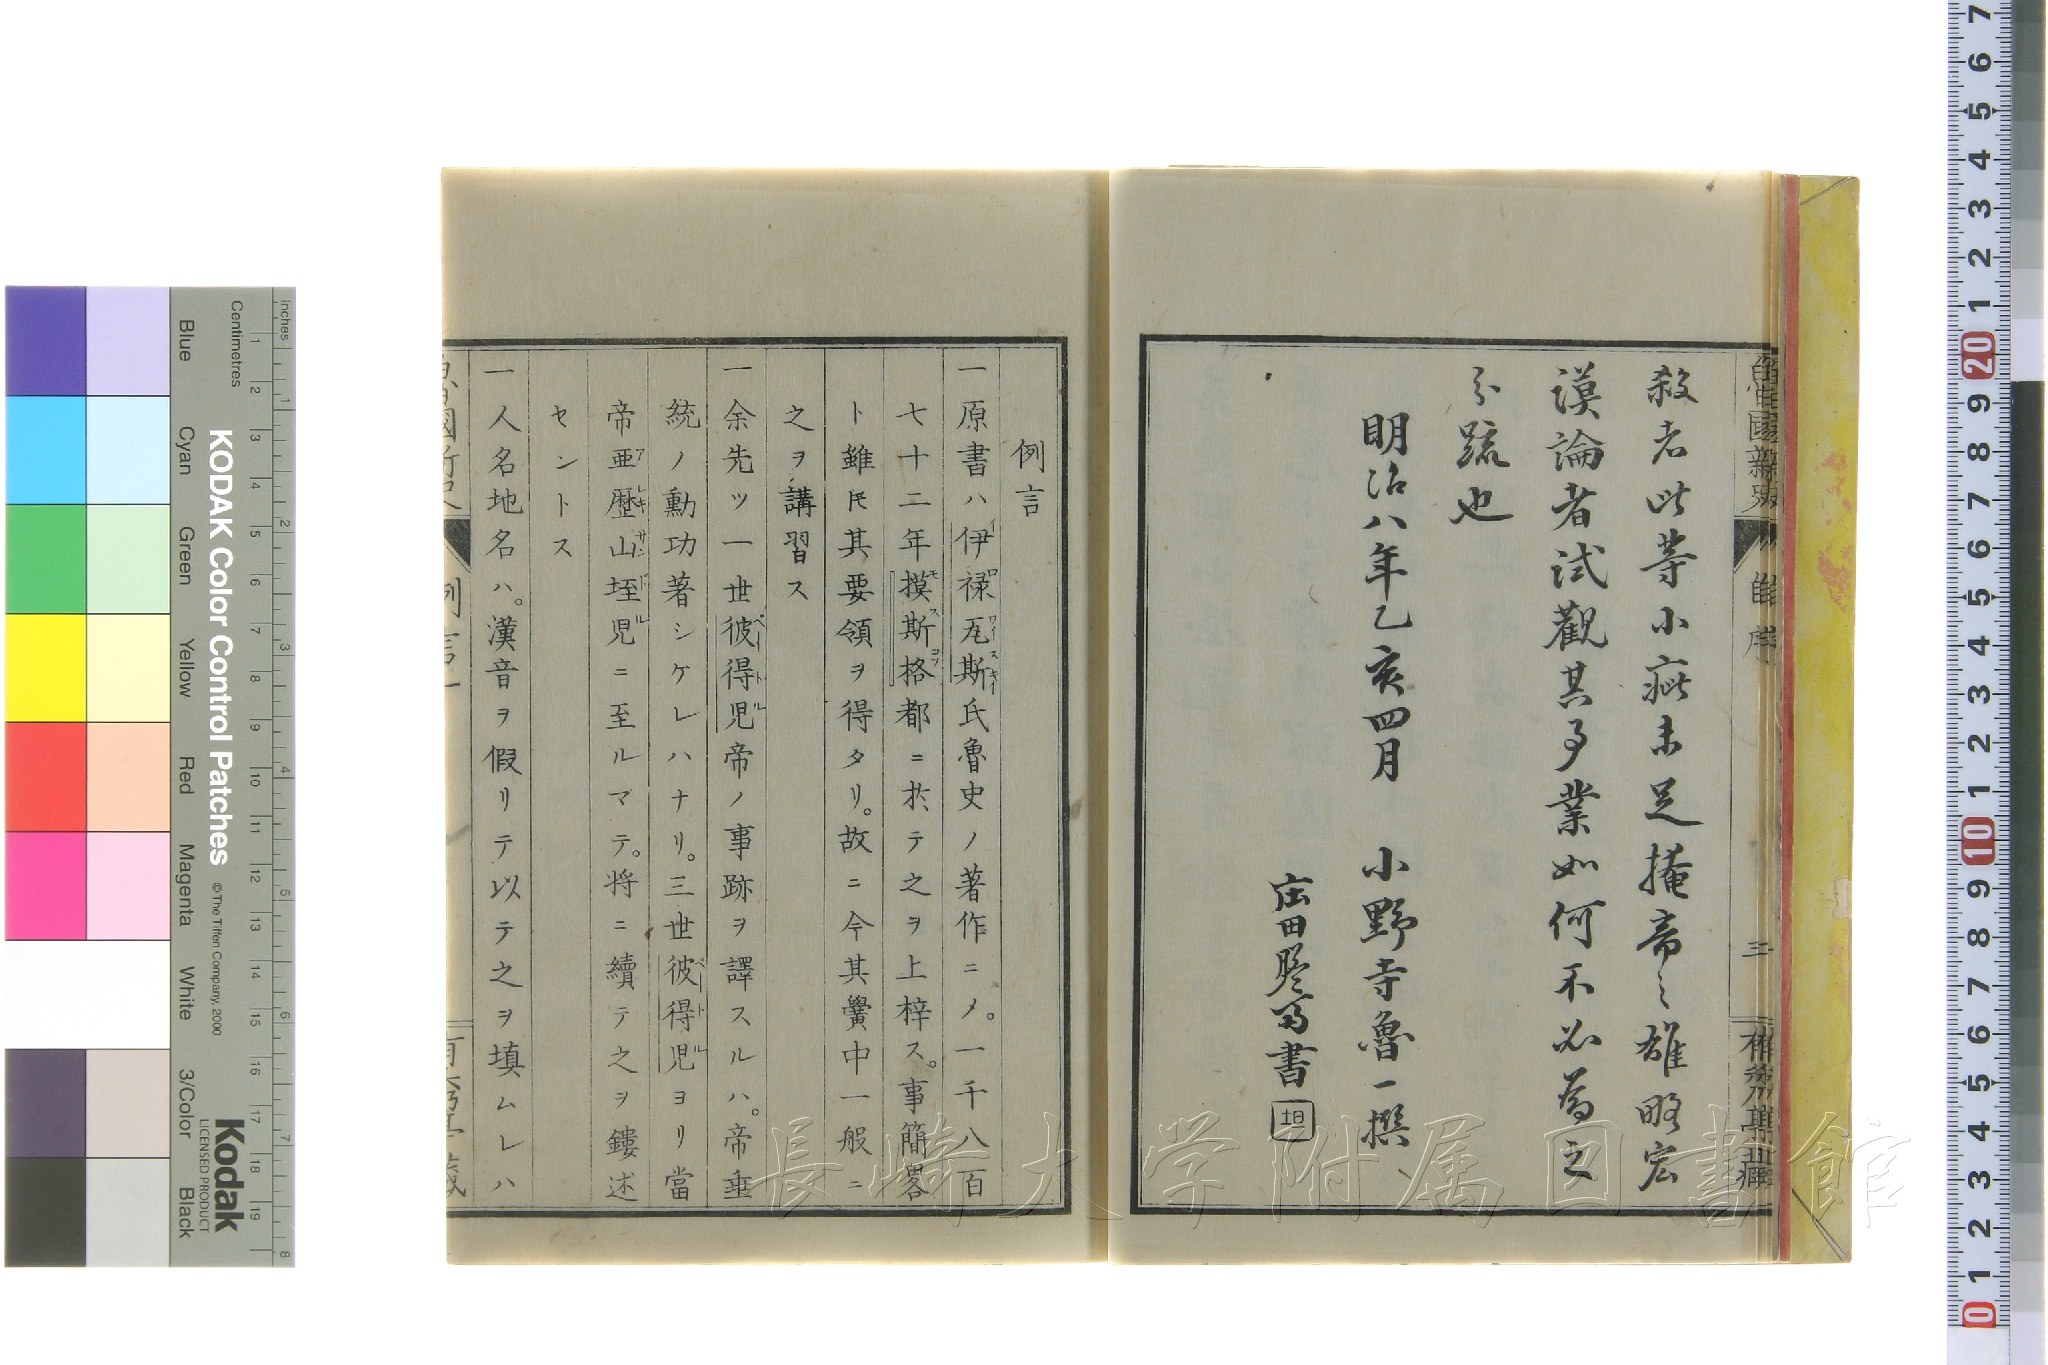 殺者此等小疵未足掩帝之雄略宏
謨論者試觀其事業如何不必為之
分疏也
明治八年乙亥四月 小野寺魯一撰
庄田膽齋書 坦
自序
三
例言
一原書ハ伊禄瓦斯氏魯史ノ著作ニ〆。一千八百
七十二年摸斯格都ニ於テ之ヲ上梓ス。事簡畧
ト雖𪜈其要領ヲ得タリ。故ニ今其黌中一般ニ
之ヲ講習ス
一余先ツ一世彼得児帝ノ事跡ヲ譯スルハ。帝垂
統ノ勳功著シケレハナリ。三世彼得児ヨリ當
帝亜歴山垤児ニ至ルマテ。将ニ續テ之ヲ鏤述
セントス
一人名地名ハ。漢音ヲ假リテ以テ之ヲ填ムレハ
長崎大学附属図書館
KODAK Color Control Patches
© The Tiffen Company, 2000
Kodak
LICENSED PRODUCT
Centimetres
Inches
Blue
Cyan
Green
Yellow
Red
Magenta
White
3/Color
Black